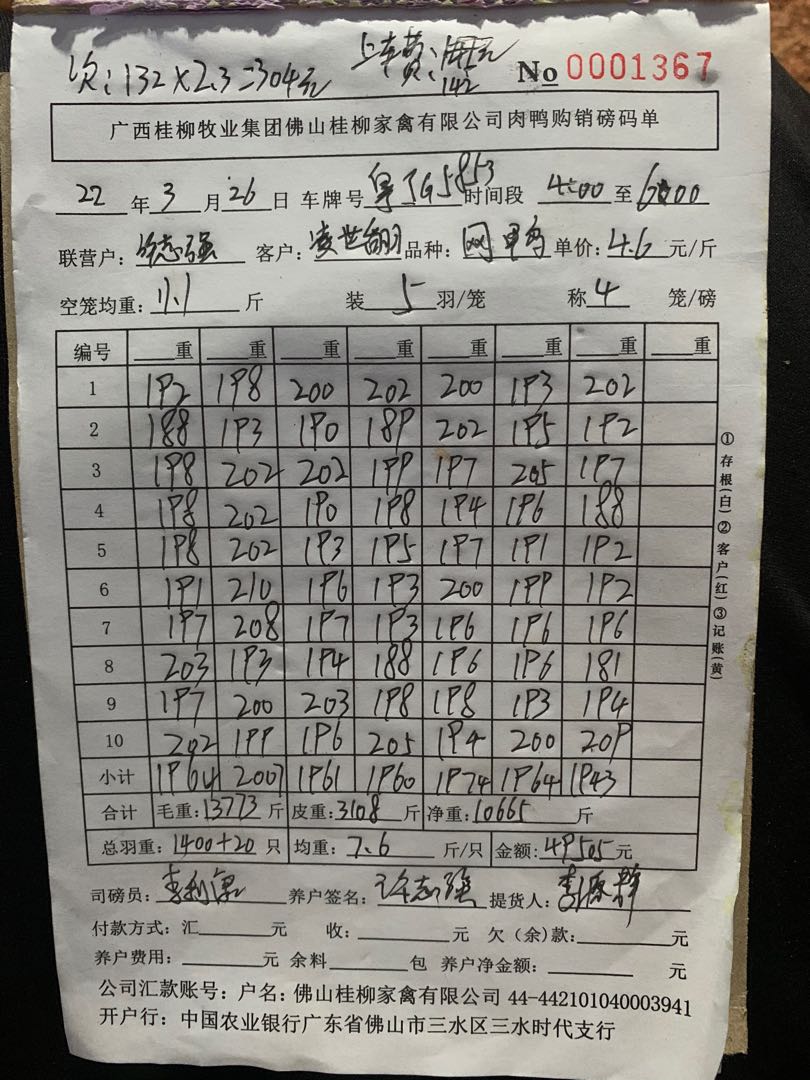 次:132×2.3=304元 上车费: 142 No 0001367
广西桂柳牧业集团佛山桂柳家禽有限公司肉鸭购销磅码单
22 年 3 月 26 日 车牌号 粤 G5853 时间段 4:00 至 6:00
联营户: 许志强 客户: 凌世翻 品种: 网鸭 单价: 4.6 元/斤
空笼均重: 11.1 斤 装 5 羽/笼 称 4 笼/磅
编号 重 重 重 重 重 重 重 重
1 192 198 200 202 200 193 202
2 188 193 190 189 202 195 192
3 198 202 202 199 197 205 197
4 198 202 190 198 194 196 188
5 198 202 193 195 197 191 192
6 191 210 196 193 200 199 192
7 197 208 197 193 196 196 196
8 203 193 194 188 196 196 181
9 197 200 203 198 198 193 194
10 202 199 196 205 194 200 209
小计 1964 2007 1961 1960 1974 1964 1943
合计 毛重: 13773 斤 皮重: 3108 斤 净重: 10665 斤
总羽重: 1400+20 只 均重: 7.6 斤/只 金额: 49505 元
司磅员: 李利 养户签名: 许志强 提货人: 李
付款方式: 汇 元 收: 元 欠(余)款: 元
养户费用: 元 余料 包 养户净金额: 元
公司汇款账号: 户名: 佛山桂柳家禽有限公司 44-442101040003941
开户行: 中国农业银行广东省佛山市三水区三水时代支行
①存根(白)②客户(红)③记账(黄)